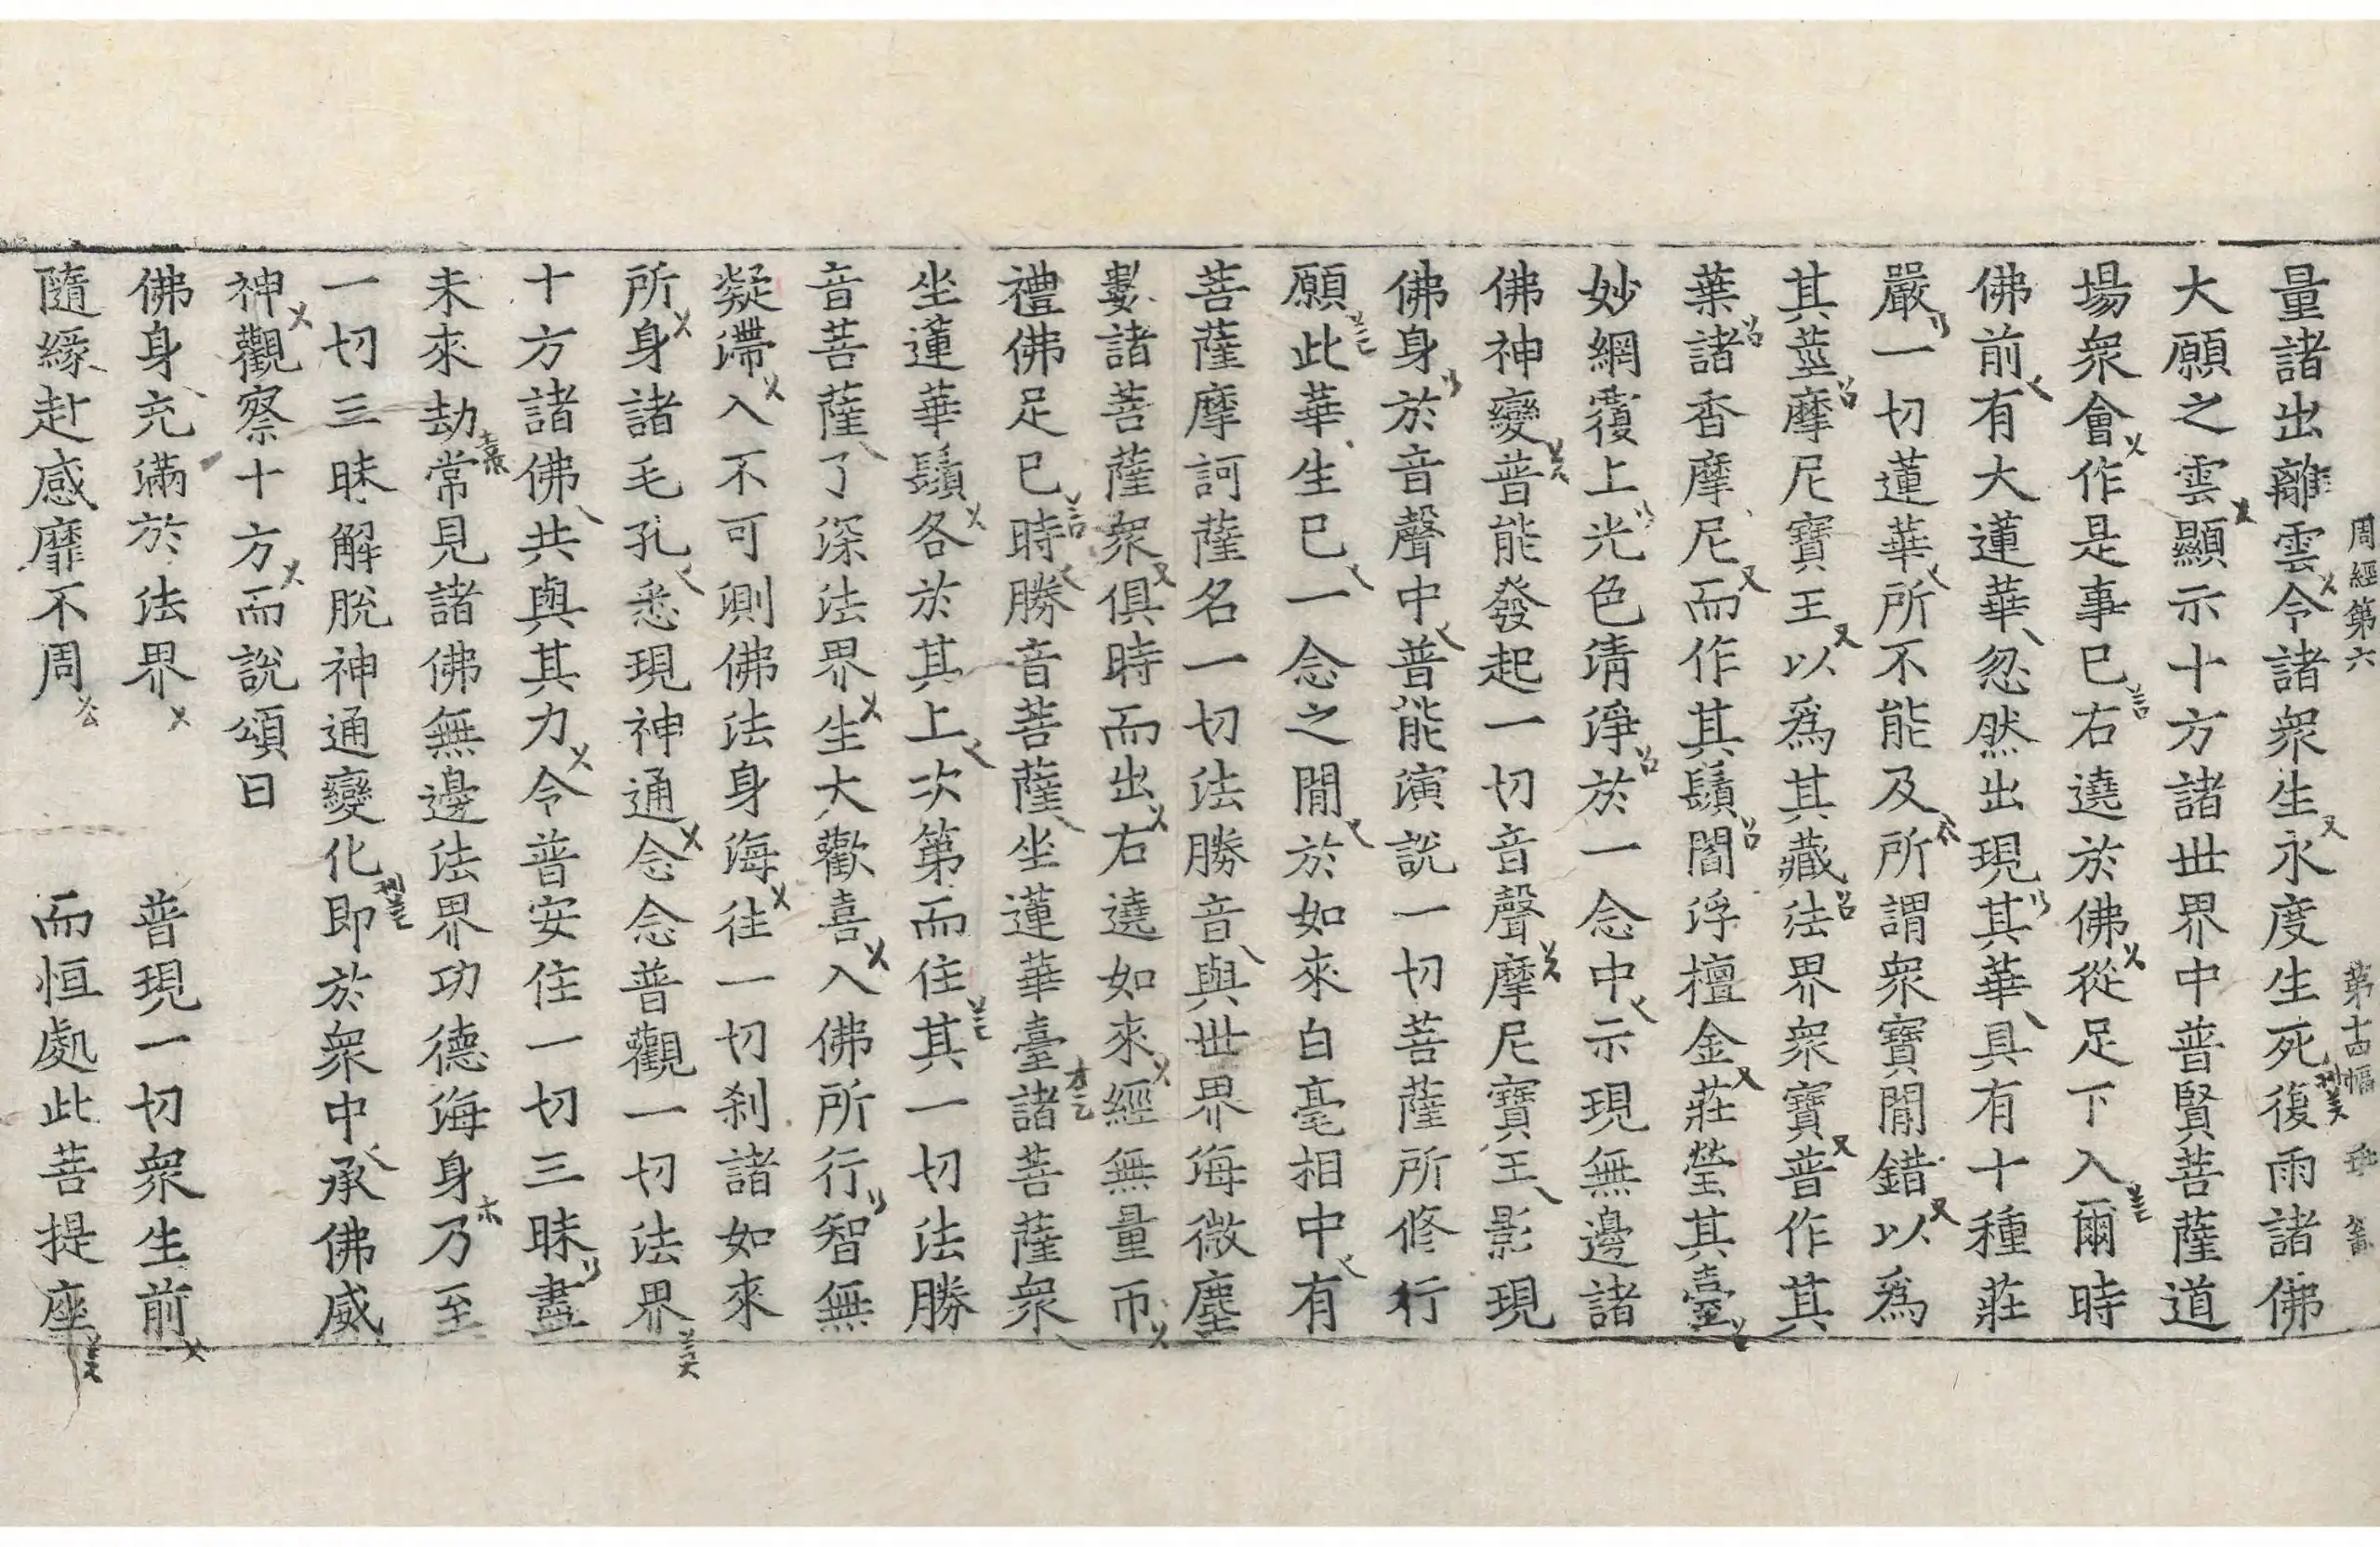 周經第六　第十四幅
量諸出離雲令諸衆生永度生死復雨諸佛
大願之雲顯示十方諸世界中普賢菩薩道
場衆會作是事已右遶於佛從足下入爾時
佛前有大蓮華忽然出現其華具有十種莊
嚴一切蓮華所不能及所謂衆寶閒錯以爲
其莖摩尼寶王以爲其藏法界衆寶普作其
葉諸香摩尼而作其鬚閻浮檀金莊瑩其臺
妙網覆上光色淸淨於一念中示現無邊諸
佛神變普能發起一切音聲摩尼寶王影現
佛身於音聲中普能演說一切菩薩所修行
願此華生已一念之閒於如來白毫相中有
菩薩摩訶薩名一切法勝音與世界海微塵
數諸菩薩衆俱時而出右遶如來經無量帀
禮佛足已時勝音菩薩坐蓮華臺諸菩薩衆
坐蓮華鬚各於其上次第而住其一切法勝
音菩薩了深法界生大歡喜入佛所行智無
凝滯入不可測佛法身海往一切刹諸如來
所身諸毛孔悉現神通念念普觀一切法界
十方諸佛共與其力令普安住一切三昧盡
未來劫常見諸佛無邊法界功德海身乃至
一切三昧解脫神通變化即於衆中承佛威
神觀察十方而說頌曰
佛身充滿於法界　普現一切衆生前
隨緣赴感靡不周　而恒處此菩提座